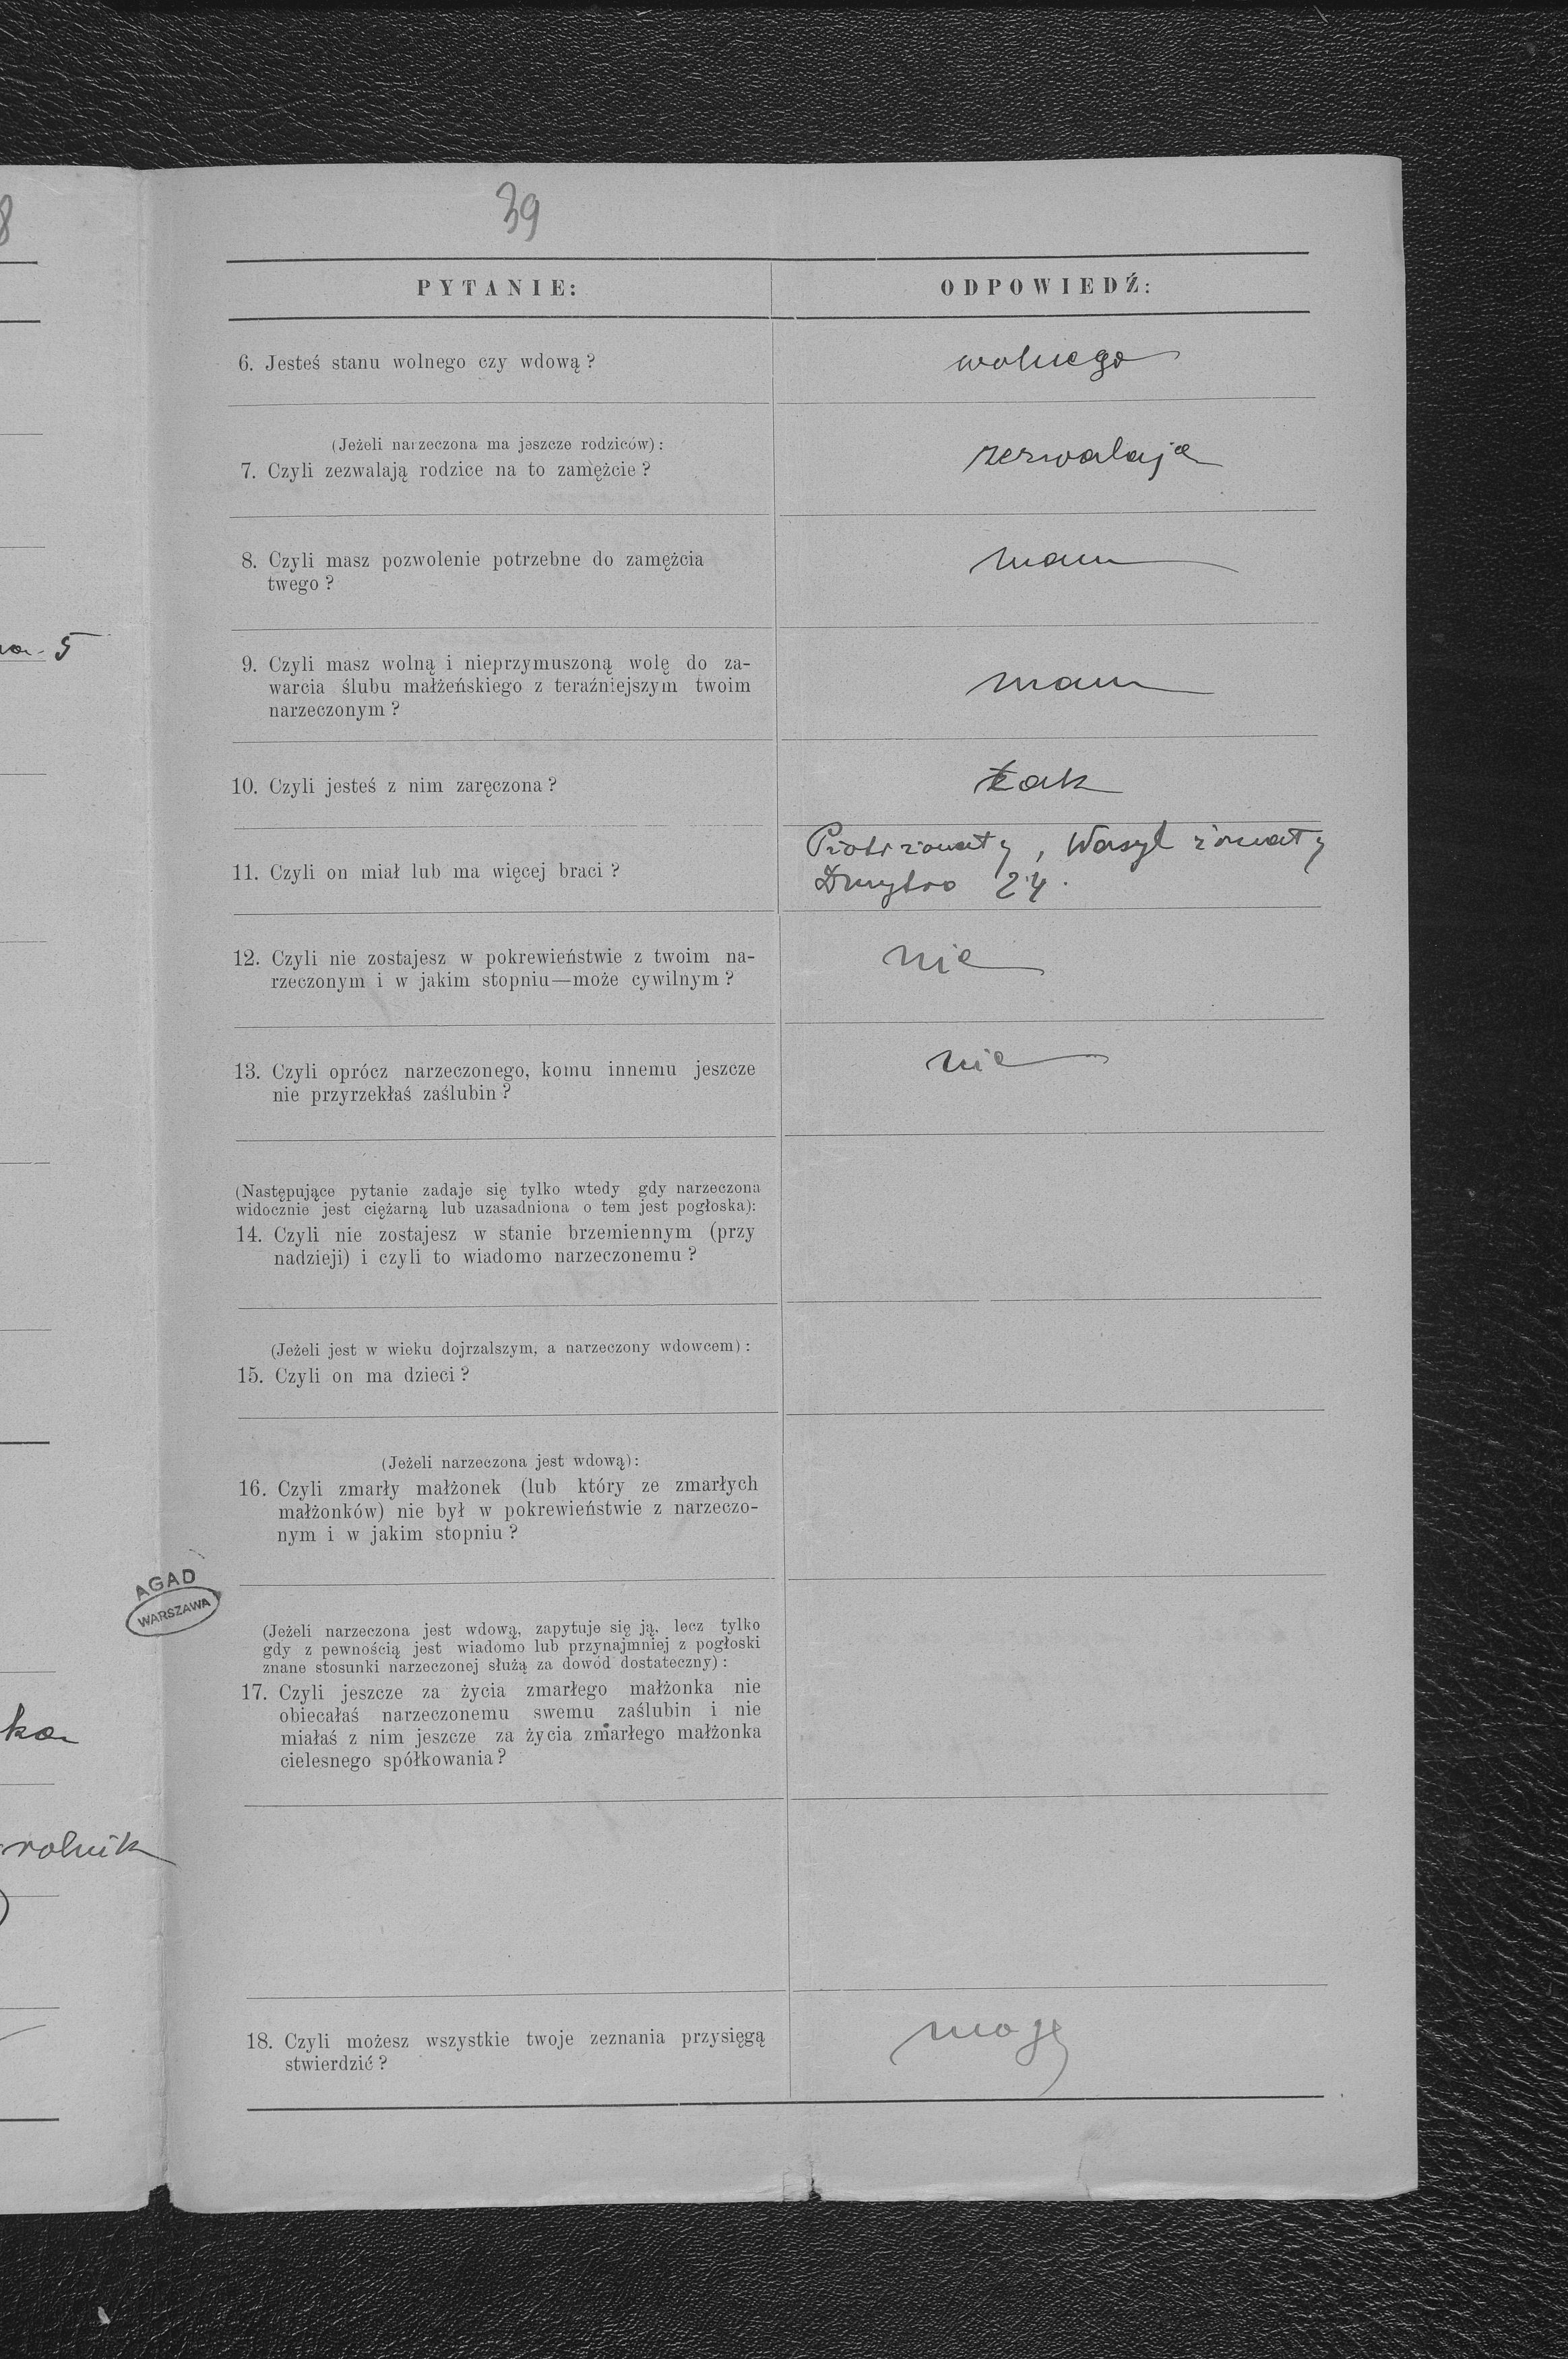 39
PYTANIE:
ODPOWIEDŹ:
6. Jesteś stanu wolnego czy wdową?
wolnego
(Jeżeli narzeczona ma jeszcze rodziców):
7. Czyli zezwalają rodzice na to zamężcie?
zezwalają
8. Czyli masz pozwolenie potrzebne do zamężcia
twego?
mam
9. Czyli masz wolną i nieprzymuszoną wolę do za-
warcia ślubu małżeńskiego z teraźniejszym twoim
narzeczonym?
mam
10. Czyli jesteś z nim zaręczona?
tak
11. Czyli on miał lub ma więcej braci?
Piotr żonaty, Wasyl żonaty
Dmytro 24.
12. Czyli nie zostajesz w pokrewieństwie z twoim na-
rzeczonym i w jakim stopniu—może cywilnym?
nie
13. Czyli oprócz narzeczonego, komu innemu jeszcze
nie przyrzekłaś zaślubin?
nie
(Następujące pytanie zadaje się tylko wtedy gdy narzeczona
widocznie jest ciężarną lub uzasadniona o tem jest pogłoska):
14. Czyli nie zostajesz w stanie brzemiennym (przy
nadzieji) i czyli to wiadomo narzeczonemu?
(Jeżeli jest w wieku dojrzalszym, a narzeczony wdowcem):
15. Czyli on ma dzieci?
(Jeżeli narzeczona jest wdową):
16. Czyli zmarły małżonek (lub który ze zmarłych
małżonków) nie był w pokrewieństwie z narzeczo-
nym i w jakim stopniu?
AGAD
WARSZAWA
(Jeżeli narzeczona jest wdową, zapytuje się ją, lecz tylko
gdy z pewnością jest wiadomo lub przynajmniej z pogłoski
znane stosunki narzeczonej służą za dowód dostateczny):
17. Czyli jeszcze za życia zmarłego małżonka nie
obiecałaś narzeczonemu swemu zaślubin i nie
miałaś z nim jeszcze za życia zmarłego małżonka
cielesnego spółkowania?
rolnik
18. Czyli możesz wszystkie twoje zeznania przysięgą
stwierdzić?
mogę